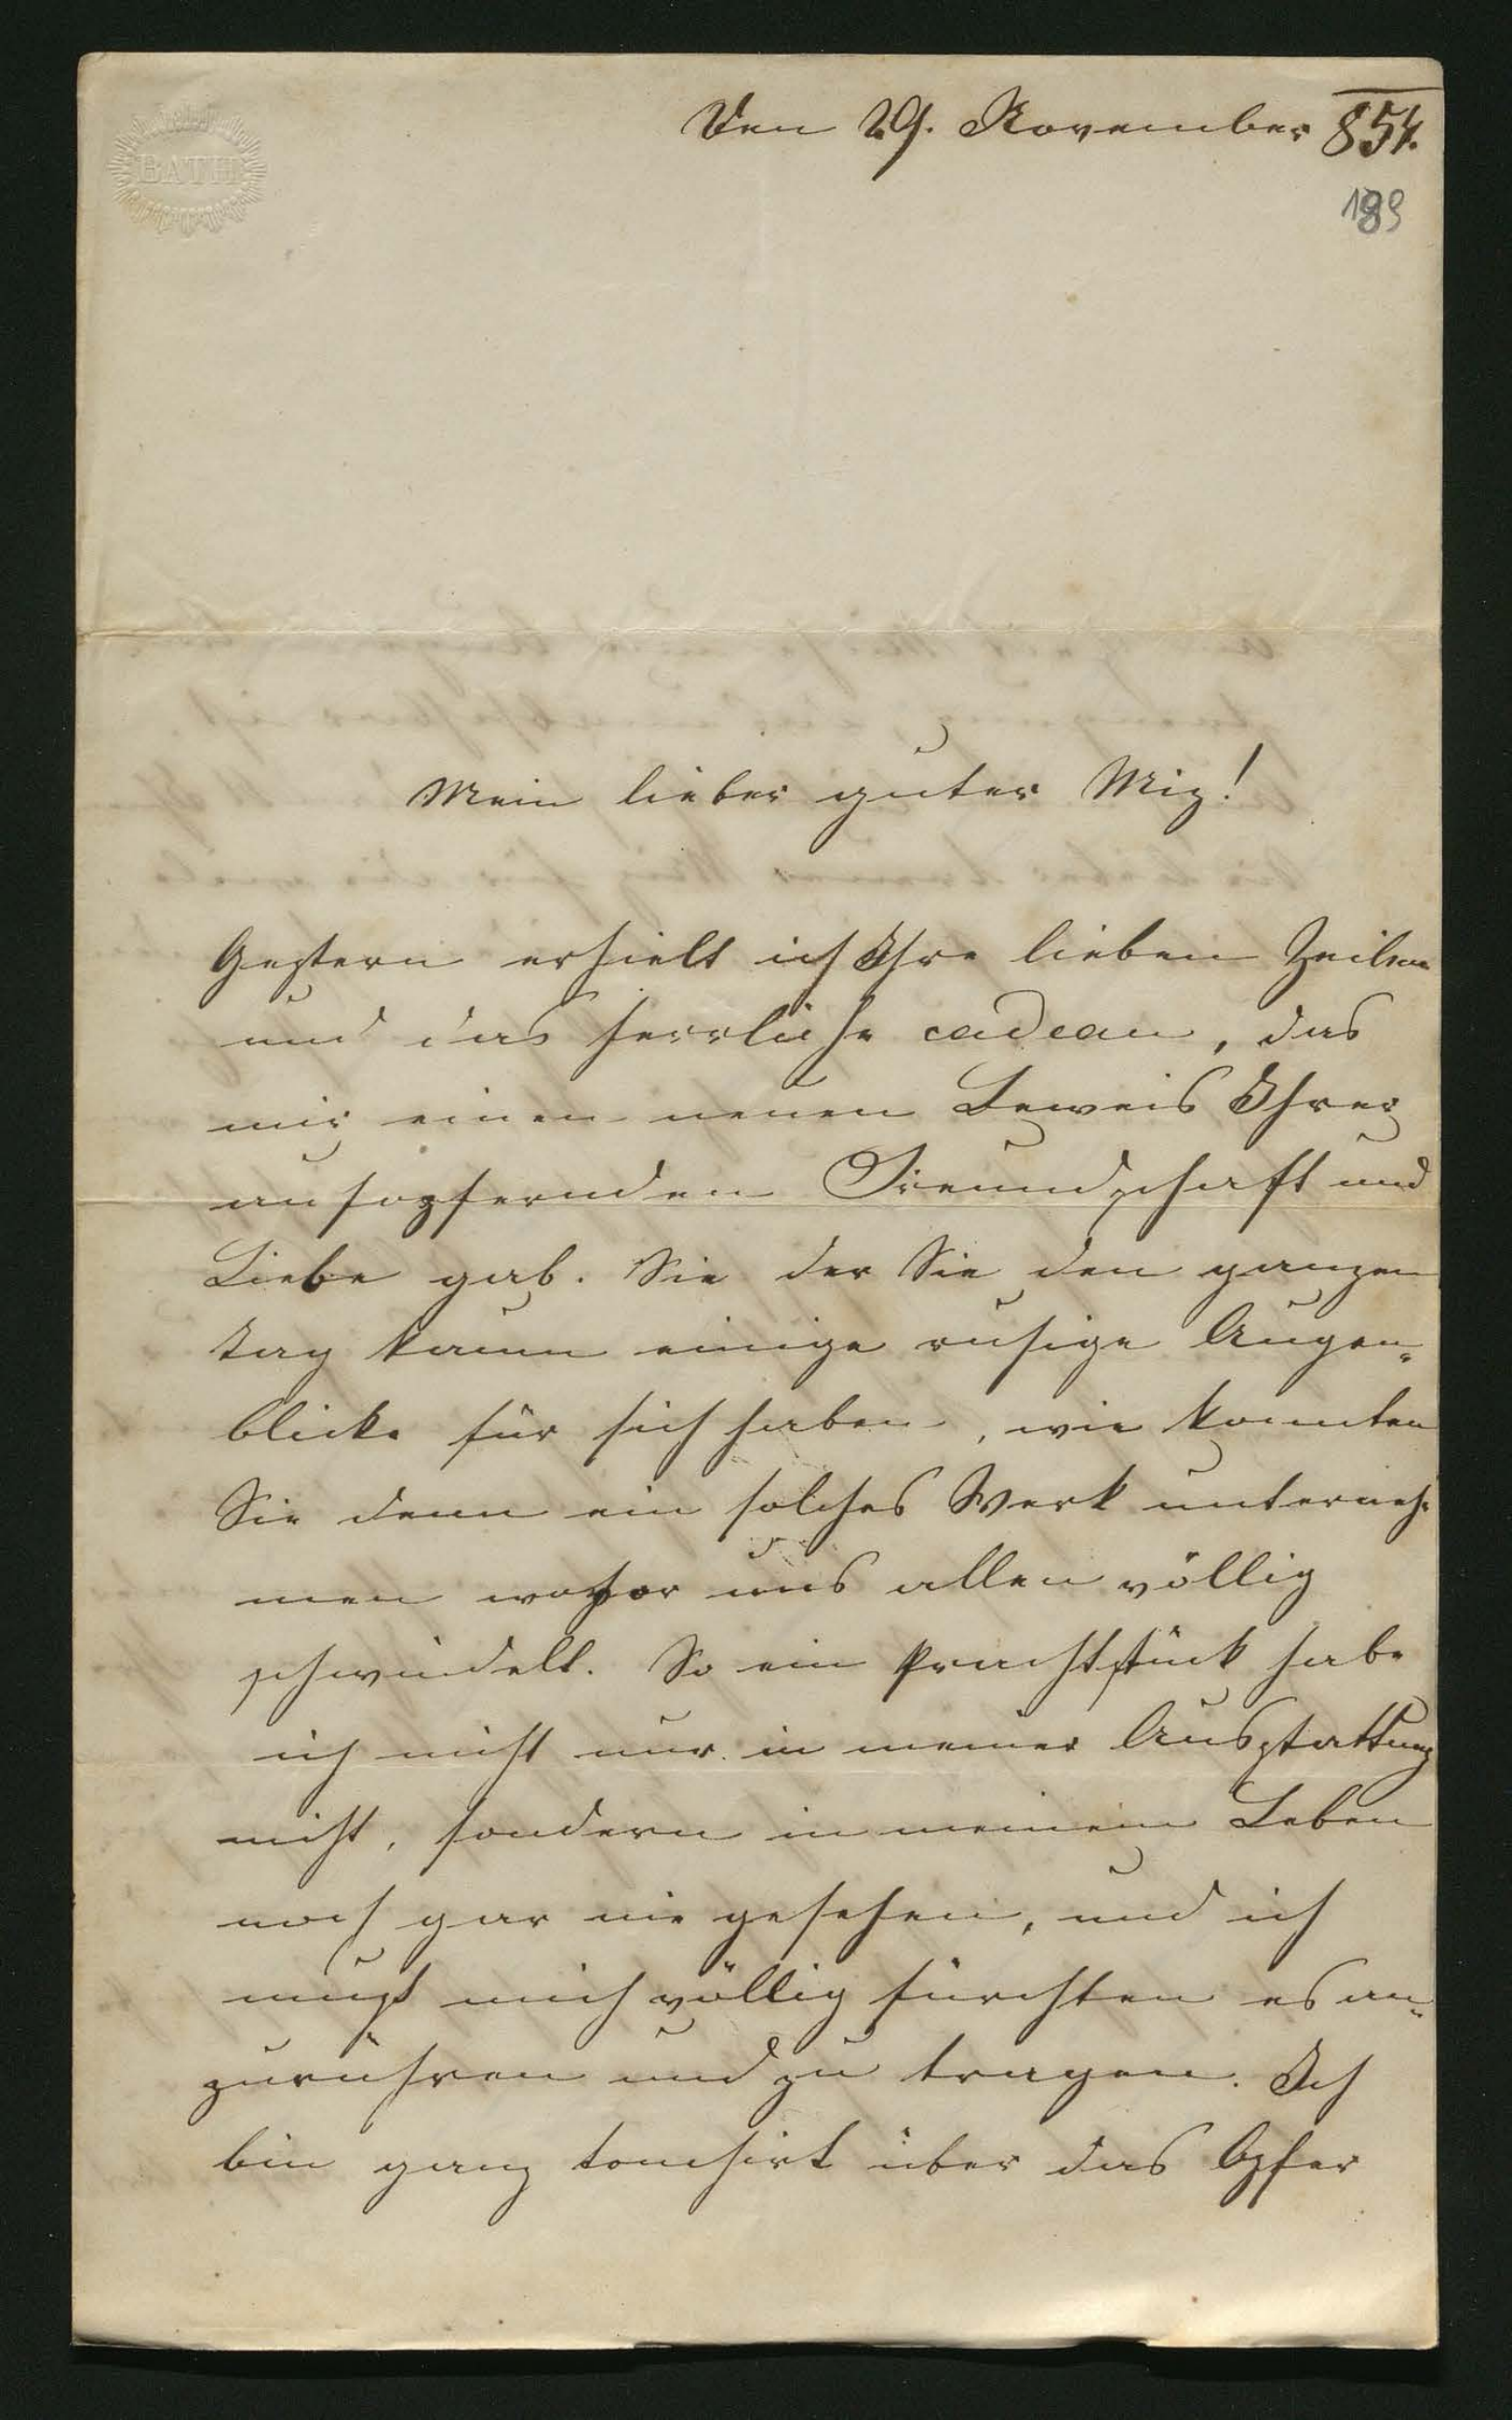 BATH
Den 29. November 854.
189
Mein lieber guter Miz!
Gestern erhielt ich Ihre lieben Zeilen
und das herrliche cadeau, das
mir einen neuen Beweis Ihrer
aufopfernden Freundschaft und
Liebe gab. Sie der Sie den ganzen
Tag kaum einige ruhige Augen-
blicke für sich haben, wie konnten
Sie denn ein solches Werk unterneh-
men wovor uns allen völlig
schwindelt. So ein Prachtstück habe
ich nicht nur in meiner Ausstattung
nicht, sondern in meinem Leben
noch gar nie gesehen, und ich
muß mich völlig fürchten es an-
zurühren und zu tragen. Ich
bin ganz touchirt über das Opfer